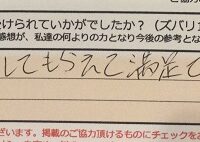 受けられていかがでしたか？（ズバリ
感想が、私達の何よりの力となり今後の参考とな
してもらえて満足で
ざいます。掲載のご協力頂けるものにチェックをお